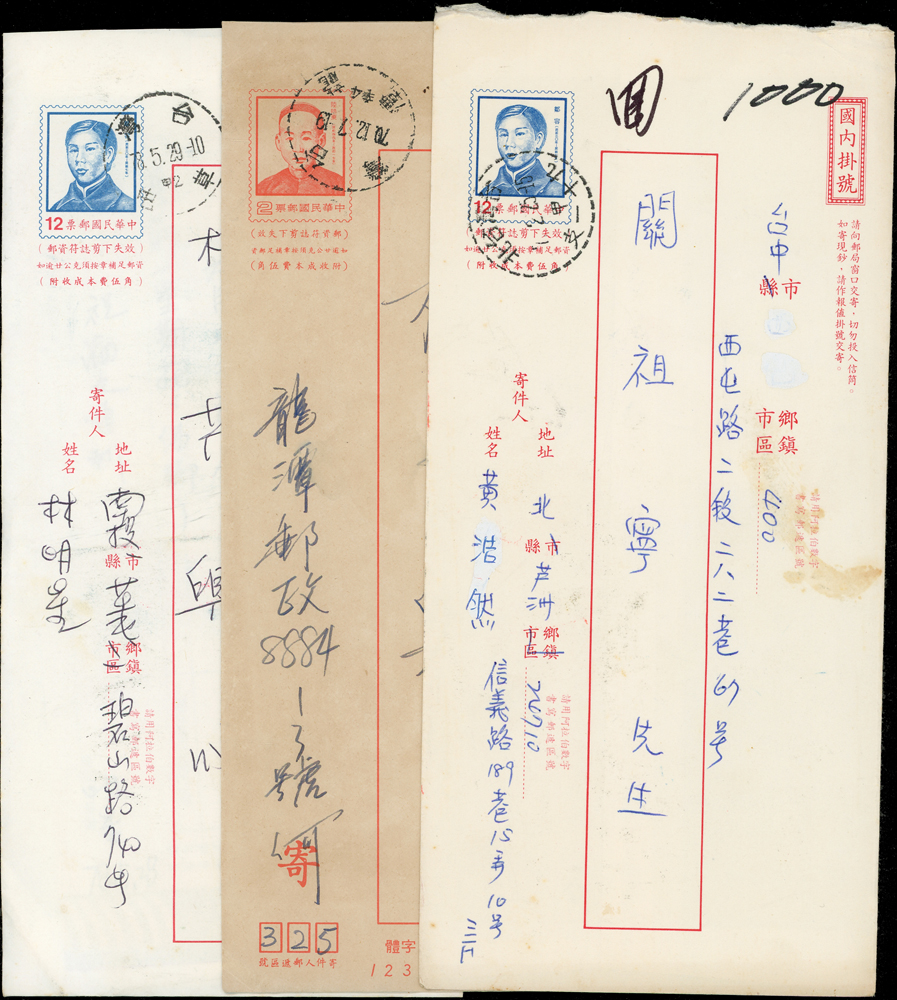 中華民國郵票
12
(郵資符誌剪下失效)
如逾廿公克須按章補足郵資
(附收成本費伍角)
台
78.5.29-10
草
林
寄件人
地址
姓名
南投
縣市
草屯
鄉鎮
市區
碧山路740号
請用阿拉伯數字
書寫郵遞區號
林明星
中華民國郵票
2
(郵資符誌剪下失效)
如逾廿公克須按章補足郵資
(附收成本費伍角)
70.12.7-19
龍潭郵政8884
號
寄
325
寄件人郵遞區號
字體
123
圓
1000
國內掛號
請向郵局窗口交寄,切勿投入信筒。
如寄現鈔,請作報値掛號交寄。
台中
縣市
鄉鎮
市區
400
請用阿拉伯數字
書寫郵遞區號
西屯路二段二八二巷67号
關祖寧先生
中華民國郵票
12
(郵資符誌剪下失效)
如逾廿公克須按章補足郵資
(附收成本費伍角)
寄件人
地址
姓名
北
縣市
芦洲
鄉鎮
市區
24710
請用阿拉伯數字
書寫郵遞區號
信義路189巷15弄10号
黃浩然